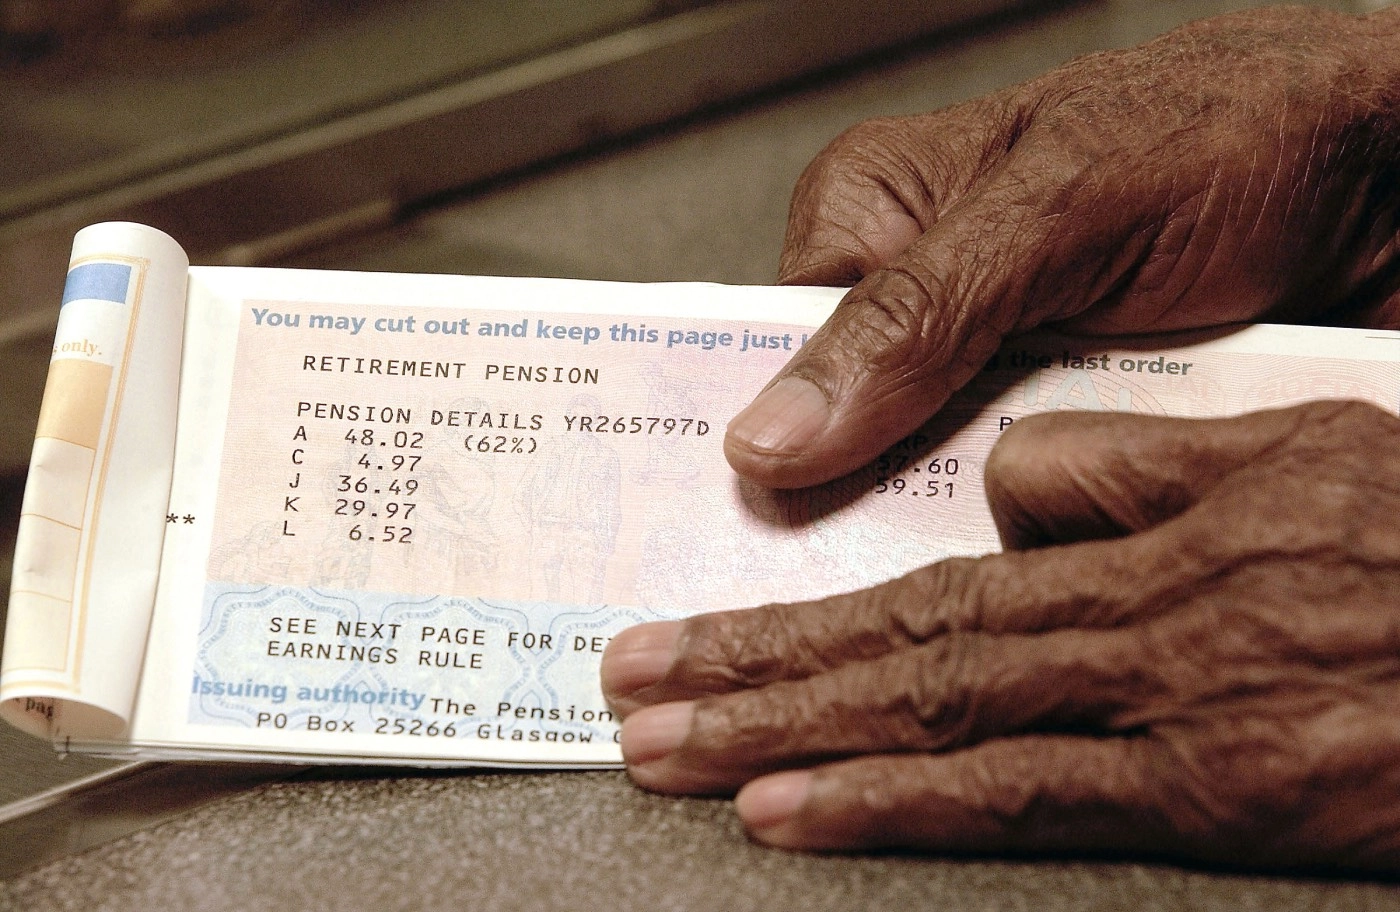 only.
You may cut out and keep this page just
the last order
RETIREMENT PENSION
PENSION DETAILS YR265797D
A 48.02 (62%)
C 4.97
J 36.49 57.60
K 29.97 59.51
L 6.52
**
SEE NEXT PAGE FOR
EARNINGS RULE
Issuing authority The Pension
PO Box 25266 Glasgow